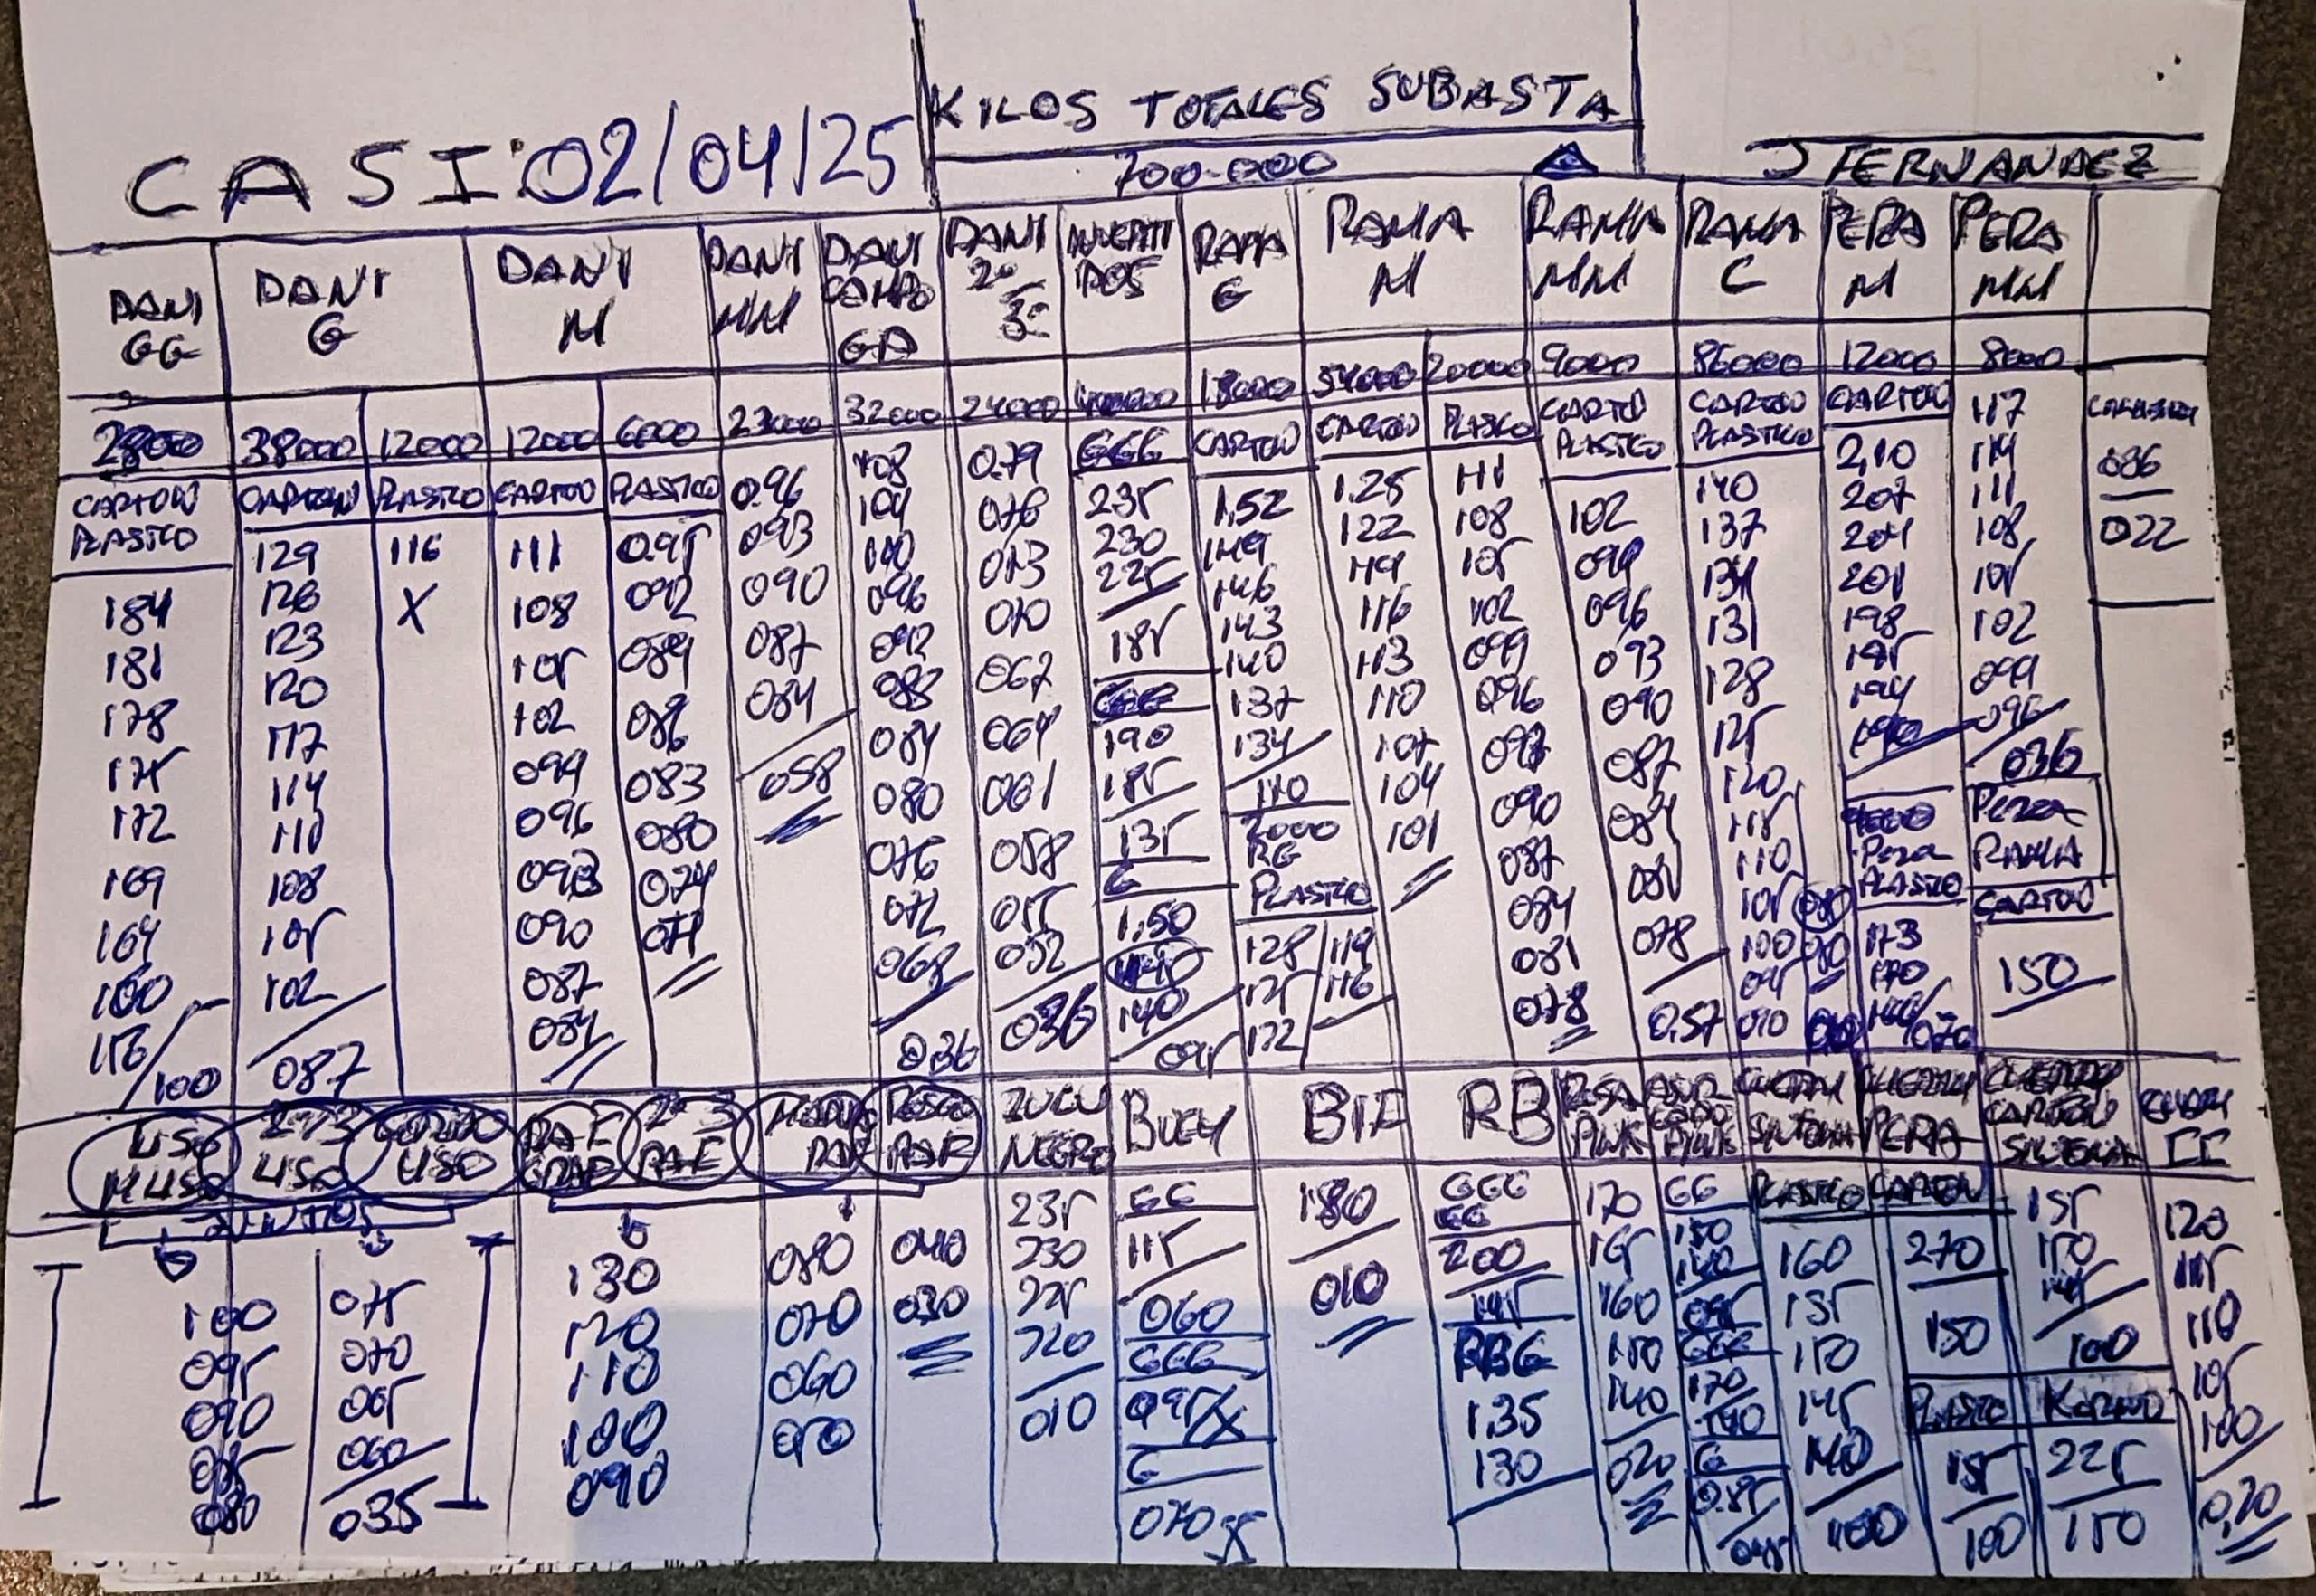 CASI 02/04/25
KILOS TOTALES SUBASTA
700.000
J FERNANDEZ
DANI GG
DANI G
DANI M
DANI MM
DANI CAMPO GA
DANI 2ª 3ª
RAMA G
RAMA M
RAMA MM
RAMA C
PERA M
PERA MM
28000 38000 12000 12000 6000 23000 32000 24000 18000 54000 20000 9000 86000 12000 8000
CARTON PLASTICO
184
181
178
175
172
169
164
160
156
100
CARTON
129
126
123
120
117
114
111
108
105
102
087
PLASTICO
116
X
CARTON
111
108
105
102
099
096
093
090
087
084
PLASTICO
095
092
089
086
083
080
074
071
096
093
090
087
084
058
108
104
100
096
092
088
084
080
076
072
068
036
079
076
073
070
067
064
061
058
055
052
036
GGG
235
230
225
185
GG
190
185
135
G
1,50
145
140
095
CARTON
1,52
149
146
143
140
137
134
110
2000
RG
PLASTICO
128 119
125 116
122
CARTON
1.25
122
119
116
113
110
107
104
101
PLASTICO
111
108
105
102
099
096
093
090
087
084
081
078
CARTON
PLASTICO
102
099
096
093
090
087
084
081
078
0,57
CARTON
PLASTICO
140
137
134
131
128
125
120
115
110
105
100
095
090
CARTON
2,10
207
204
201
198
195
194
190
PERA
PLASTICO
173
170
070
117
114
111
108
105
102
099
096
036
PERA
RAMA
CARTON
150
086
022
LISO
2ª 3 LISO
LISO
2ª 3
PAF
ZUCU
NEGRO
BUEY
BIF
RB
ROSA
PINK
CHERRY
PERA
100
095
090
085
080
075
070
065
060
035
130
120
110
100
090
080
070
060
050
040
030
235
230
225
220
010
GG
115
060
GGG
095 X
G
070 X
180
010
GGG
GG
200
145
RBG
1.35
130
170
165
160
150
140
020
GG
150
140
095
GGG
170
140
G
0.85
045
PLASTICO
160
155
150
145
140
100
CARTON
270
150
PLASTICO
155
100
155
150
145
100
225
150
120
115
110
105
100
0,20